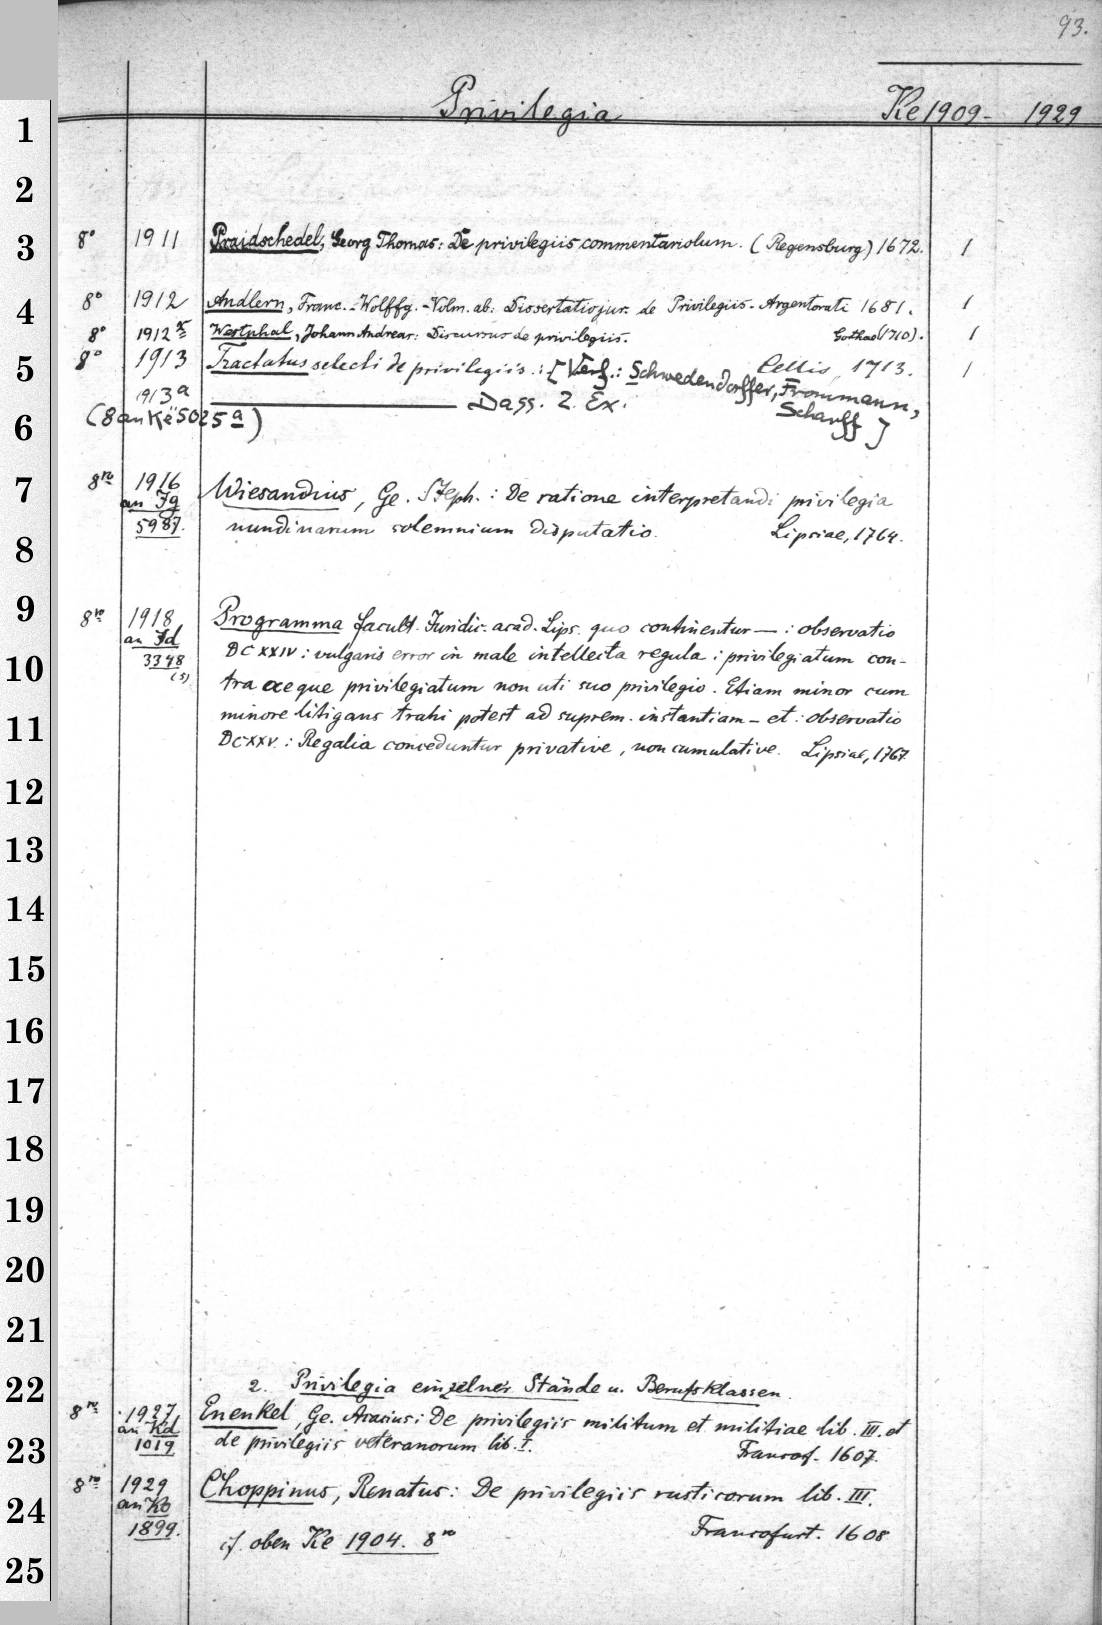 93.
Privilegia Ke 1909- 1929
1
2
3 8° 1911 Praidschedel, Georg Thomas: De privilegiis commentariolum. (Regensburg) 1672. 1
4 8° 1912 Andlern, Franc.-Wolffg.-Volm. ab: Dissertatio jur. de Privilegiis. Argentorati 1681. 1
8° 1912 Westphal, Johann Andreas: Discursus de privilegiis. Gothae (1710). 1
5 8° 1913 Tractatus selecti de privilegiis.: [Verf.: Schwedendorffer, Frommann, Cellis, 1713. 1
1913a Dass. 2. Ex. Scharff]
6 (8 an Ke 5025a)
7 8vo 1916 Wiesandius, Ge. Steph.: De ratione interpretandi privilegia
an Jg
5987. nundinarum solemnium disputatio. Lipsiae, 1764.
8
9 8vo 1918 Programma facult. Juridic. acad. Lips. quo continentur — : observatio
an Jd
10 3348 DCXXIV: vulgaris error in male intellecta regula: privilegiatum con-
(5)
tra aeque privilegiatum non uti suo privilegio. Etiam minor cum
11 minore litigans trahi potest ad suprem. instantiam - et: observatio
DCXXV.: Regalia conceduntur privative, non cumulative. Lipsiae, 1767.
12
13
14
15
16
17
18
19
20
21
22 2. Privilegia einzelner Stände u. Berufsklassen.
8vo 1927 Enenkel, Ge. Acacius: De privilegiis militum et militiae lib. III. et
an Kd
23 1019 de privilegiis veteranorum lib. I. Francof. 1607.
8vo 1929 Choppinus, Renatus: De privilegiis rusticorum lib. III.
24 an Kb
1899. Francofurt. 1608
cf. oben Ke 1904. 8vo
25